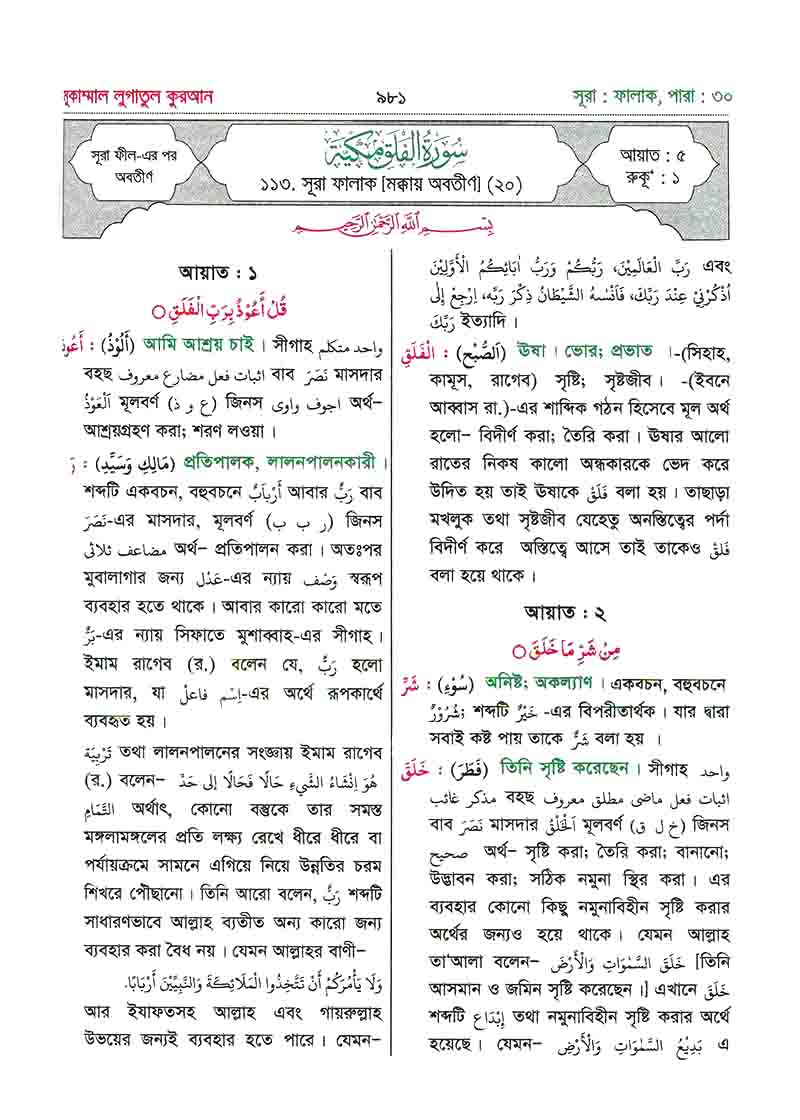 মুকাম্মাল লুগাতুল কুরআন
৯৮১
সূরা : ফালাক, পারা : ৩০
সূরা ফীল-এর পর
অবতীর্ণ
سُوْرَةُ الْفَلَقِ مَكِّيَّةٌ
১১৩. সূরা ফালাক [মক্কায় অবতীর্ণ] (২০)
আয়াত : ৫
রুকূ' : ১
بِسْمِ اللّٰهِ الرَّحْمٰنِ الرَّحِيْمِ
আয়াত : ১
قُلْ أَعُوْذُ بِرَبِّ الْفَلَقِ ○
أَعُوذُ : (أَلُوْذُ) আমি আশ্রয় চাই। সীগাহ واحد متكلم
বহছ اثبات فعل مضارع معروف বাব نَصَرَ মাসদার
اَلْعَوْذُ মূলবর্ণ (ع و ذ) জিনস اجوف واوى অর্থ–
আশ্রয়গ্রহণ করা; শরণ লওয়া।
رَ : (مَالِكٌ وَسَيِّدٌ) প্রতিপালক, লালনপালনকারী।
শব্দটি একবচন, বহুবচনে أَرْبَابٌ আবার رَبٌّ বাব
نَصَرَ-এর মাসদার, মূলবর্ণ (ر ب ب) জিনস
مضاعف ثلاثى অর্থ– প্রতিপালন করা। অতঃপর
মুবালাগার জন্য عَدْل-এর ন্যায় وَصْف স্বরূপ
ব্যবহার হতে থাকে। আবার কারো কারো মতে
بَرٌّ-এর ন্যায় সিফাতে মুশাব্বাহ-এর সীগাহ।
ইমাম রাগেব (র.) বলেন যে, رَبٌّ হলো
মাসদার, যা اِسْم فاعلْ-এর অর্থে রূপকার্থে
ব্যবহৃত হয়।
تَرْبِيَة তথা লালনপালনের সংজ্ঞায় ইমাম রাগেব
(র.) বলেন– هُوَ إِنْشَاءُ الشَّيْءِ حَالًا فَحَالًا إلى حَدِّ
التَّمَامِ অর্থাৎ, কোনো বস্তুকে তার সমস্ত
মঙ্গলামঙ্গলের প্রতি লক্ষ্য রেখে ধীরে ধীরে বা
পর্যায়ক্রমে সামনে এগিয়ে নিয়ে উন্নতির চরম
শিখরে পৌঁছানো। তিনি আরো বলেন, رَبٌّ শব্দটি
সাধারণভাবে আল্লাহ ব্যতীত অন্য কারো জন্য
ব্যবহার করা বৈধ নয়। যেমন আল্লাহর বাণী–
وَلَا يَأْمُرَكُمْ أَنْ تَتَّخِذُوا الْمَلَائِكَةَ وَالنَّبِيِّيْنَ أَرْبَابًا.
আর ইযাফতসহ আল্লাহ এবং গায়রুল্লাহ
উভয়ের জন্যই ব্যবহার হতে পারে। যেমন–
رَبِّ الْعَالَمِيْنَ، رَبُّكُمْ وَرَبُّ اٰبَائِكُمُ الْأَوَّلِيْنَ এবং
اُذْكُرْنِيْ عِنْدَ رَبِّكَ، فَاَنْسٰهُ الشَّيْطَانُ ذِكْرَ رَبِّه، اِرْجِعْ إِلٰى
رَبِّكَ ইত্যাদি।
الْفَلَقِ : (اَلصُّبْحِ) ঊষা। ভোর; প্রভাত ।-(সিহাহ,
কামূস, রাগেব) সৃষ্টি; সৃষ্টজীব। -(ইবনে
আব্বাস রা.)-এর শাব্দিক গঠন হিসেবে মূল অর্থ
হলো– বিদীর্ণ করা; তৈরি করা। ঊষার আলো
রাতের নিকষ কালো অন্ধকারকে ভেদ করে
উদিত হয় তাই ঊষাকে فَلَقْ বলা হয়। তাছাড়া
মখলুক তথা সৃষ্টজীব যেহেতু অনস্তিত্বের পর্দা
বিদীর্ণ করে অস্তিত্বে আসে তাই তাকেও فَلَقْ
বলা হয়ে থাকে।
আয়াত : ২
مِنْ شَرِّ مَا خَلَقَ ○
شَرِّ : (سُوْءِ) অনিষ্ট; অকল্যাণ। একবচন, বহুবচনে
شُرُوْرٌ; শব্দটি خَيْرٌ -এর বিপরীতার্থক। যার দ্বারা
সবাই কষ্ট পায় তাকে شَرٌّ বলা হয় ।
خَلَقَ : (فَطَرَ) তিনি সৃষ্টি করেছেন। সীগাহ واحد
مذكر غائب বহছ اثبات فعل ماضى مطلق معروف
বাব نَصَرَ মাসদার اَلْخَلْقُ মূলবর্ণ (خ ل ق) জিনস
صحيح অর্থ– সৃষ্টি করা; তৈরি করা; বানানো;
উদ্ভাবন করা; সঠিক নমুনা স্থির করা। এর
ব্যবহার কোনো কিছু নমুনাবিহীন সৃষ্টি করার
অর্থের জন্যও হয়ে থাকে। যেমন আল্লাহ
তা'আলা বলেন– خَلَقَ السَّمٰوَاتِ وَالْأَرْضَ [তিনি
আসমান ও জমিন সৃষ্টি করেছেন।] এখানে خَلَقَ
শব্দটি إِبْدَاع তথা নমুনাবিহীন সৃষ্টি করার অর্থে
হয়েছে। যেমন– بَدِيْعُ السَّمٰوَاتِ وَالْأَرْضِ এ